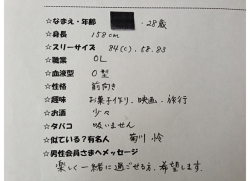 ☆なまえ・年齢 ・28歳
☆身長 158cm
☆スリーサイズ 84(C).58.83
☆職業 OL
☆血液型 O型
☆性格 前向き
☆趣味 お菓子作り.映画.旅行
☆お酒 少々
☆タバコ 吸いません
☆似ている?有名人 菊川 怜
☆男性会員さまへメッセージ
楽しく一緒に過ごせる方、希望します。